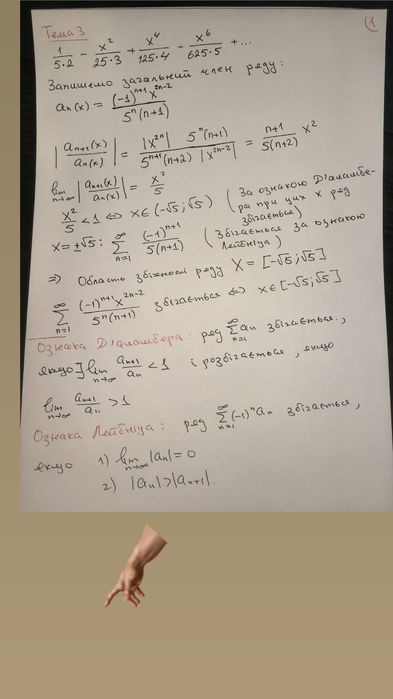 Тема 3
1
1/(5·2) - x²/(25·3) + x⁴/(125·4) - x⁶/(625·5) + ...
Запишемо загальний член ряду:
aₙ(x) = (-1)ⁿ⁺¹ x²ⁿ⁻² / (5ⁿ(n+1))
|aₙ₊₁(x)/aₙ(x)| = |x²ⁿ| 5ⁿ(n+1) / (5ⁿ⁺¹(n+2) |x²ⁿ⁻²|) = (n+1)/(5(n+2)) x²
lim n→∞ |aₙ₊₁(x)/aₙ(x)| = x²/5
x²/5 < 1 ⇔ x∈(-√5; √5) (За ознакою Д'аламбе-
ра при цих x ряд
збігається)
x = ±√5: ∑ n=1 ∞ (-1)ⁿ⁺¹/(5(n+1)) (Збігається за ознакою
Лейбніца)
⇒ Область збіжності ряду X = [-√5; √5]
∑ n=1 ∞ (-1)ⁿ⁺¹ x²ⁿ⁻² / (5ⁿ(n+1)) збігається ⇔ x∈[-√5; √5]
Ознака Д'аламбера: ряд ∑ n=1 ∞ aₙ збігається,
якщо ∃ lim n→∞ aₙ₊₁/aₙ < 1 і розбігається, якщо
lim n→∞ aₙ₊₁/aₙ > 1
Ознака Лейбніца: ряд ∑ n=1 ∞ (-1)ⁿ aₙ збігається,
якщо 1) lim n→∞ |aₙ| = 0
2) |aₙ| > |aₙ₊₁|.